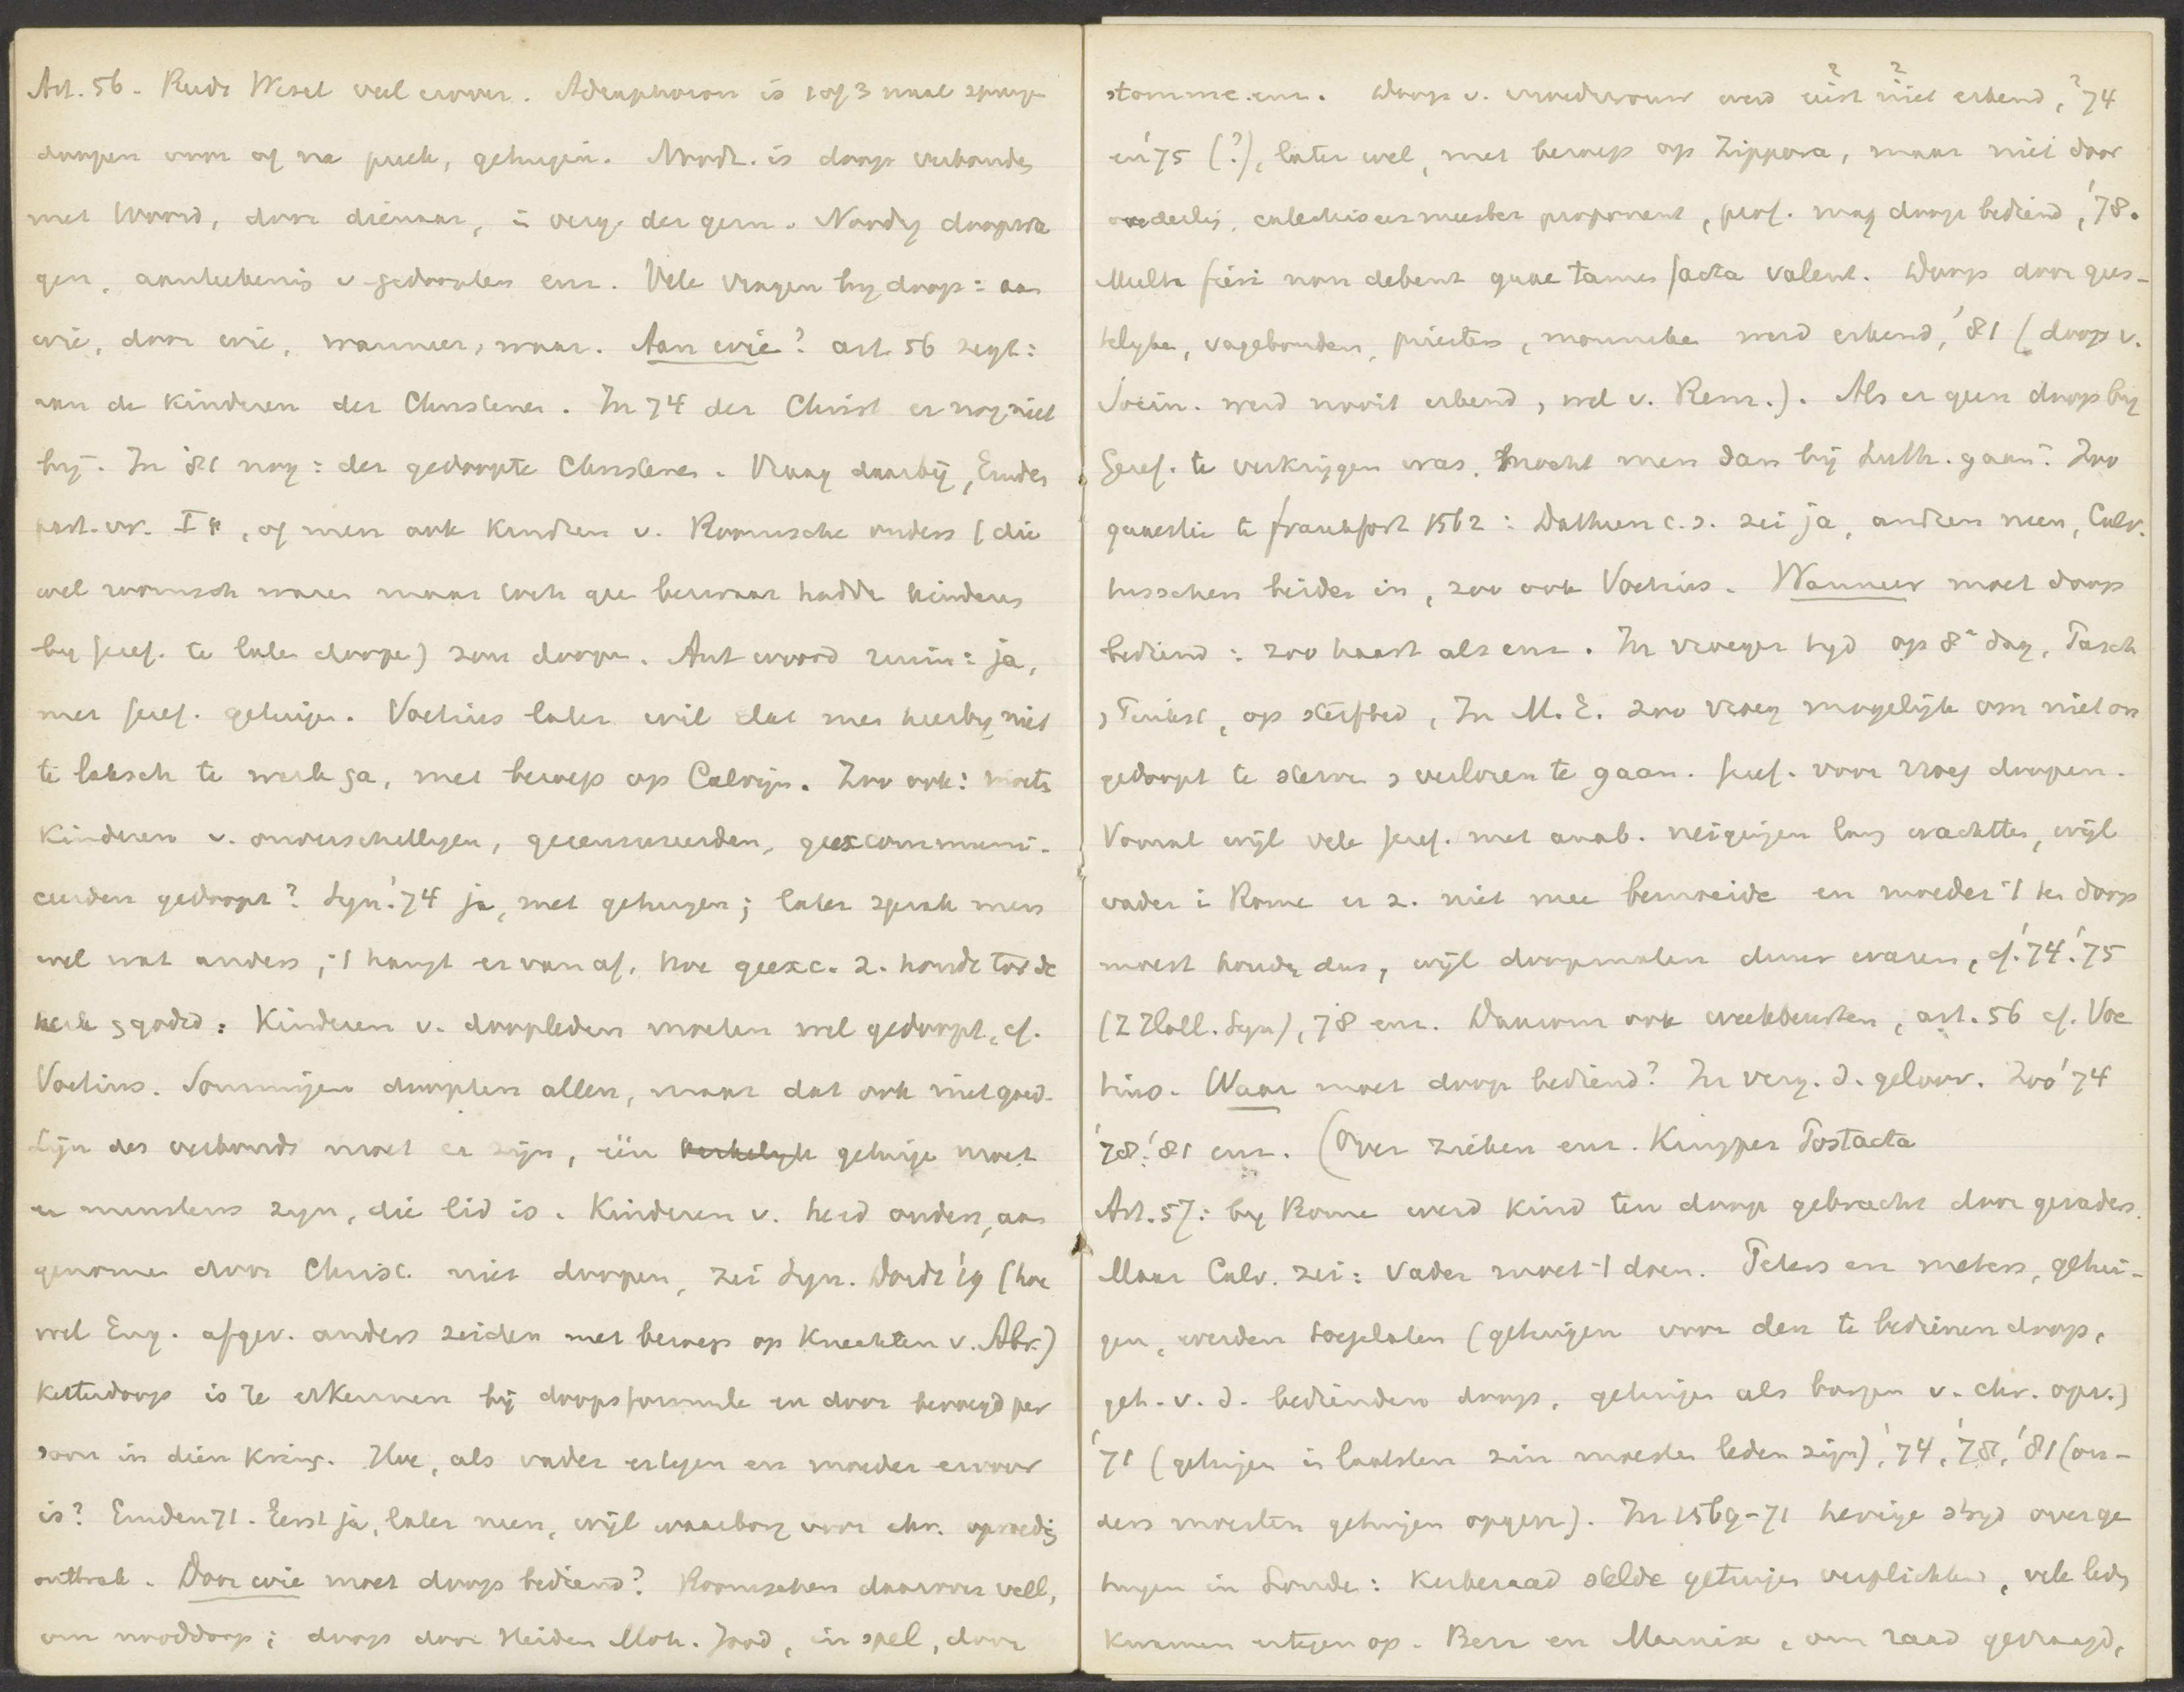 Art. 56. Reeds Wesel veel erover. Adiaphoron is 1 of 3 maal
doopen voor of na preek, getuigen. Noodz. is doop verbonden
met Woord, door dienaar, i verg. der gem. Noodig doopvra
gen, aanteekenis v gedoopten enz. Vele vragen bij doop: aan
wie, door wie, wanneer, waar. Aan wie? art. 56 zegt:
aan de Kinderen der Christenen. In 74 der Christ er nog niet
bij. In '81 nog: der gedoopte Christenen. Vraag daarbij, Emden
part. vr. I, of men ook Kinderen v. Roomsche ouders (die
wel roomsch waren maar toch geen bezwaar hadden kinderen
bij Geref. te laten doopen) zou doopen. Antwoord ruim: ja,
met Geref. getuigen. Voetius later wil dat men hierbij niet
te laksch te werk ga, met beroep op Calvijn. Zoo ook: moeten
Kinderen v. onverschilligen, gecensureerden, geexcommuni-
ceerden gedoopt? Syn. '74 ja, met getuigen; later sprak men
wel wat anders, 't hangt er van af, hoe geexc. z. houdt tov de
kerk & godsd: Kinderen v. doopleden moeten wel gedoopt, cf.
Voetius. Sommigen doopten allen, maar dat ook niet goed.
Lijn des verbonds moet er zijn, één kerkelijk getuige moet
er minstens zijn, die lid is. Kinderen v. heid. ouders, aan
genomen door Christ. niet doopen, zei Syn. Dordt '19 (hoe
wel Eng. afgev. anders zeiden met beroep op Knechten v. Abr.)
Ketterdoop is te erkennen bij doopsformule en door bevoegd per
soon in dien Kring. Hoe, als vader ertegen en moeder ervoor
is? Emden 71. Eerst ja, later neen, wijl waarborg voor chr. opvoeding
ontbrak. Door wie moet doop bediend? Roomschen daarover veel,
om nooddoop; doop door Heiden Moh. Jood, in spel, door
stomme enz. Doop v. vroedvrouw werd eerst niet erkend, '74
en '75 (?), later wel, met beroep op Zippora, maar niet door
ouderling, catechiseermeester proponent, prof. mag doop bediend, '78.
Multa fieri non debent quae tamen facta valent. Doop door gees-
telijke, vagebonden, priesters, monniken werd erkend, '81 (doop v.
Socin. werd nooit erkend, wel v. Rem.). Als er geen doop bij
Geref. te verkrijgen was, mocht men dan bij Luth. gaan? Zoo
quaestie te Frankfort 1562: Dathen c.s. zei ja, anderen neen, Calv.
tusschen beiden in, zoo ook Voetius. Wanneer moet doop
bediend: zoo haast als enz. In vroeger tijd op 8e dag, Paasch
& Pinkst, op sterfbed, In M. E. zoo vroeg mogelijk om niet on
gedoopt te sterven & verloren te gaan. Geref. voor vroeg doopen.
Vooral wijl vele Geref. met anab. neigingen lang wachtten, wijl
vader i Rome er z. niet mee bemoeide en moeder 't ten doop
moest houden dus, wijl doopmalen duur waren, cf. '74 '75
(Z Holl. Syn), 78 enz. Daarom ook weekbeurten, art. 56 cf. Voe
tius. Waar moet doop bediend? In verg. d. geloov. Zoo '74
'78 '81 enz. (Over zieken enz. Kuyper Postacta
Art. 57: bij Rome werd Kind ten doop gebracht door gevaders.
Maar Calv. zei: Vader moet 't doen. Peters en meters, getui-
gen, werden toegelaten (getuigen voor den te bedienen doop,
get. v. d. bedienden doop, getuigen als borgen v. chr. opv.)
'71 (getuigen in laatsten zin moesten leden zijn), '74, '78, '81 (ou-
ders moesten getuigen opgeven). In 1569-71 hevige strijd over ge
tuigen in Londen: Kerkeraad stelde getuigen verplichtend, vele leden
Kwamen ertegen op. Beza en Marnix, om raad gevraagd,